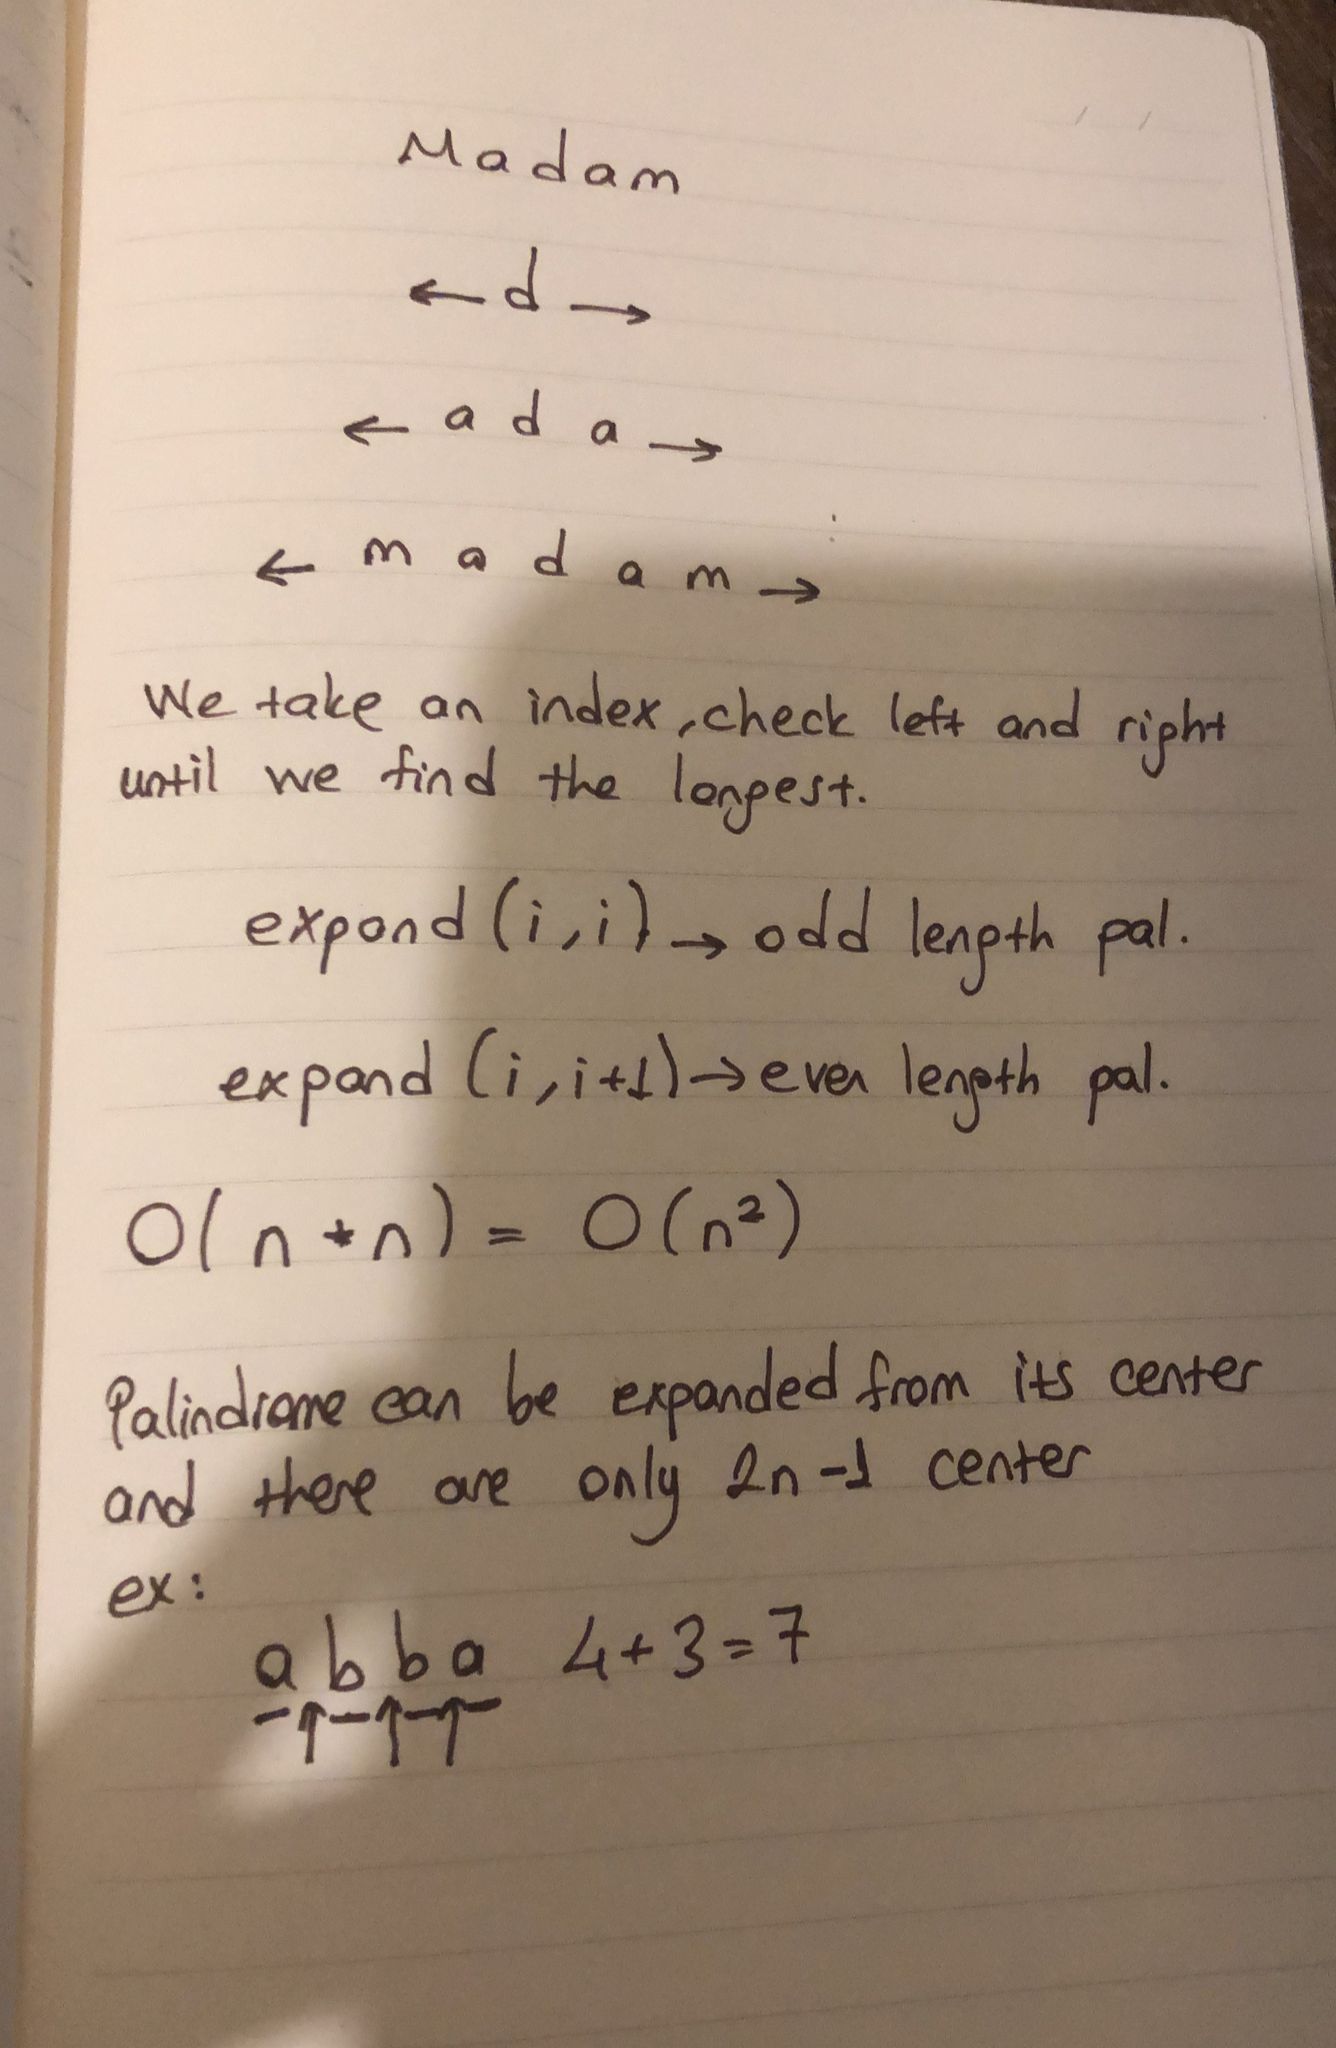 Madam
← d →
← a d a →
← m a d a m →
We take an index, check left and right
until we find the longest.
expand (i, i) → odd length pal.
expand (i, i+1) → even length pal.
O(n * n) = O(n²)
Palindrome can be expanded from its center
and there are only 2n-1 center
ex:
a b b a 4+3=7
_ ↑ _ ↑ _ ↑ _